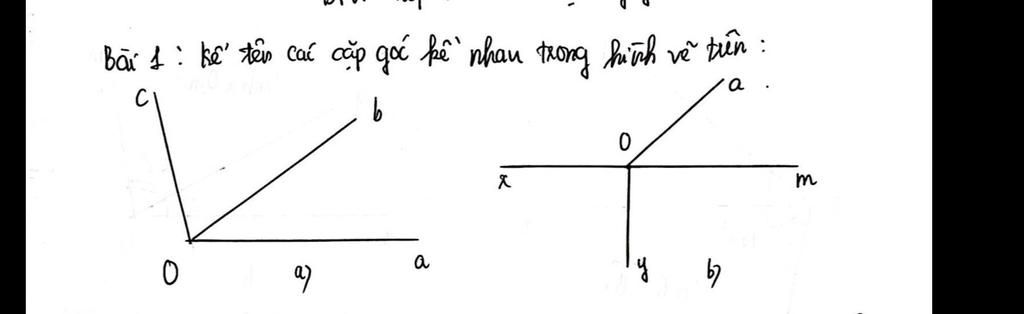 Bài 1: kể tên các cặp góc kề nhau trong hình vẽ trên:
c
b
a
O
a)
a
O
x
m
y
b)